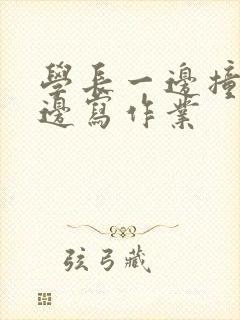 學長一邊撞
邊寫作業
弦弓藏